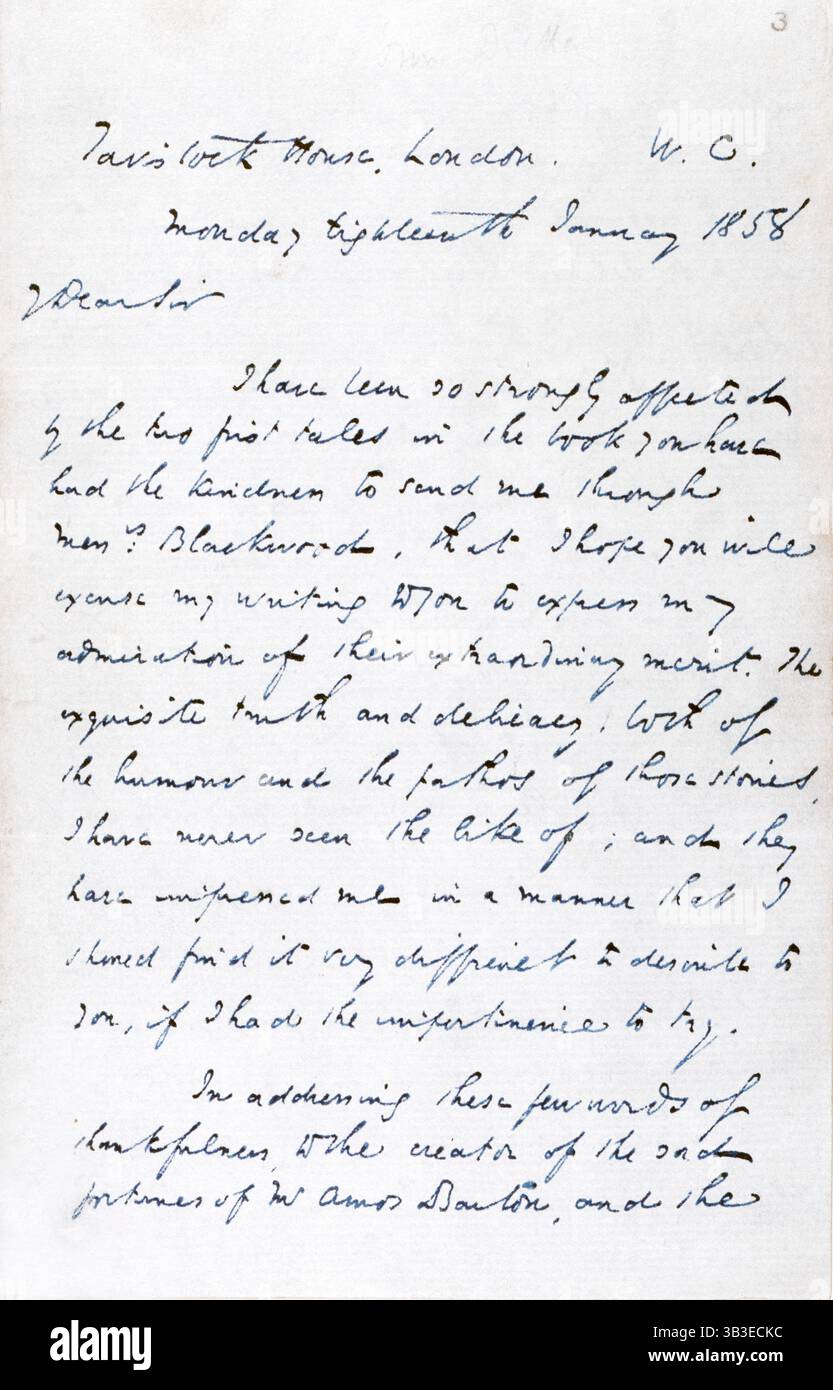 3
Tavistock House, London. W.C.
Monday Eighteenth January 1858
My Dear Sir
I have been so strongly affected
by the two first tales in the book you have
had the kindness to send me through
Messrs: Blackwood, that I hope you will
excuse my writing to you to express my
admiration of their extraordinary merit. The
exquisite truth and delicacy, both of
the humour and the pathos of those stories,
I have never seen the like of; and they
have impressed me in a manner that I
should find it very difficult to describe to
you, if I had the impertinence to try.
In addressing these few words of
thankfulness, to the creator of the sad
fortunes of Mr Amos Barton, and the
alamy
Image ID: 2B3ECKC
www.alamy.com